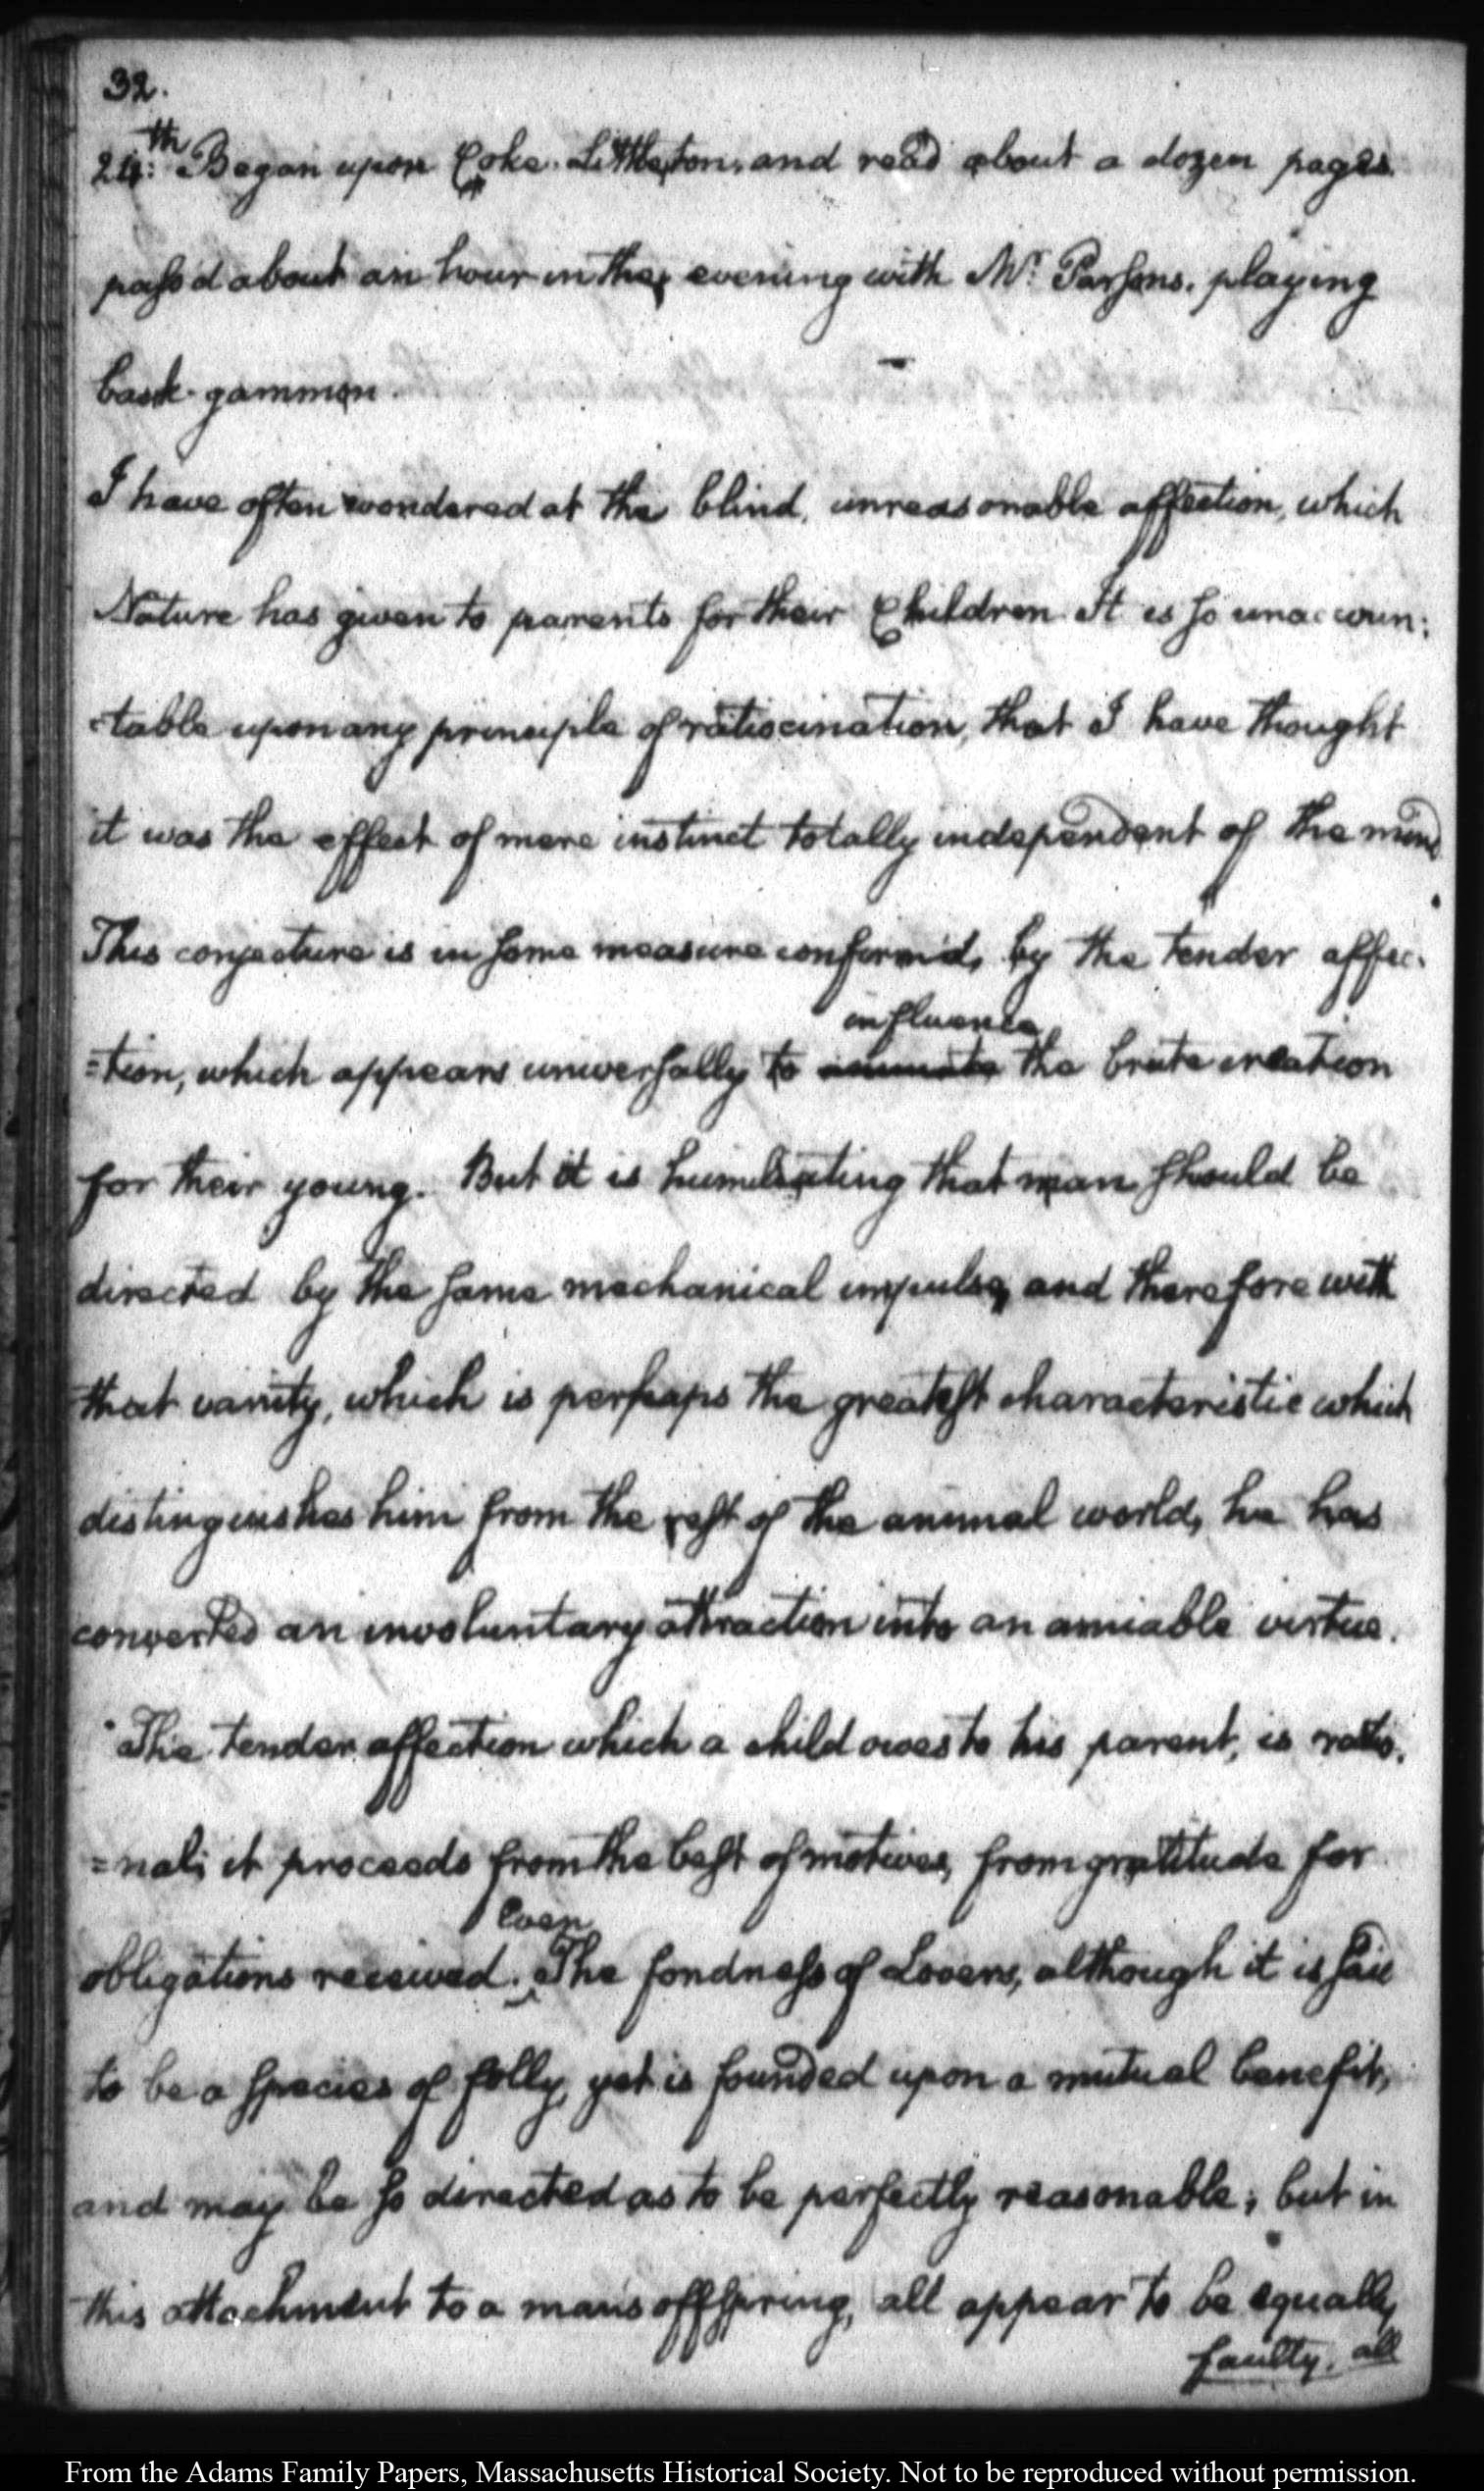 32.
24:th Began upon Coke-Littleton, and read about a dozen pages
pass'd about an hour in the evening with Mr. Parsons, playing
back-gammon.
I have often wondered at the blind, unreasonable affection, which
Nature has given to parents for their Children. It is so unaccoun:
-table upon any principle of ratiocination, that I have thought
it was the effect of mere instinct totally independent of the mind.
This conjecture is in some measure confirm'd, by the tender affec-
=tion, which appears universally to influence the brute creation
for their young. But it is humiliating that man should be
directed by the same mechanical impulse, and therefore with
that vanity, which is perhaps the greatest characteristic which
distinguishes him from the rest of the animal world, he has
converted an involuntary attraction into an amiable virtue.
The tender affection which a child owes to his parent, is ratio-
=nal; it proceeds from the best of motives, from gratitude for
obligations received. Even The fondness of Lovers, although it is said
to be a species of folly, yet is founded upon a mutual benefit,
and may be so directed as to be perfectly reasonable; but in
this attachment to a man's offspring, all appear to be equally
faulty, all
From the Adams Family Papers, Massachusetts Historical Society. Not to be reproduced without permission.